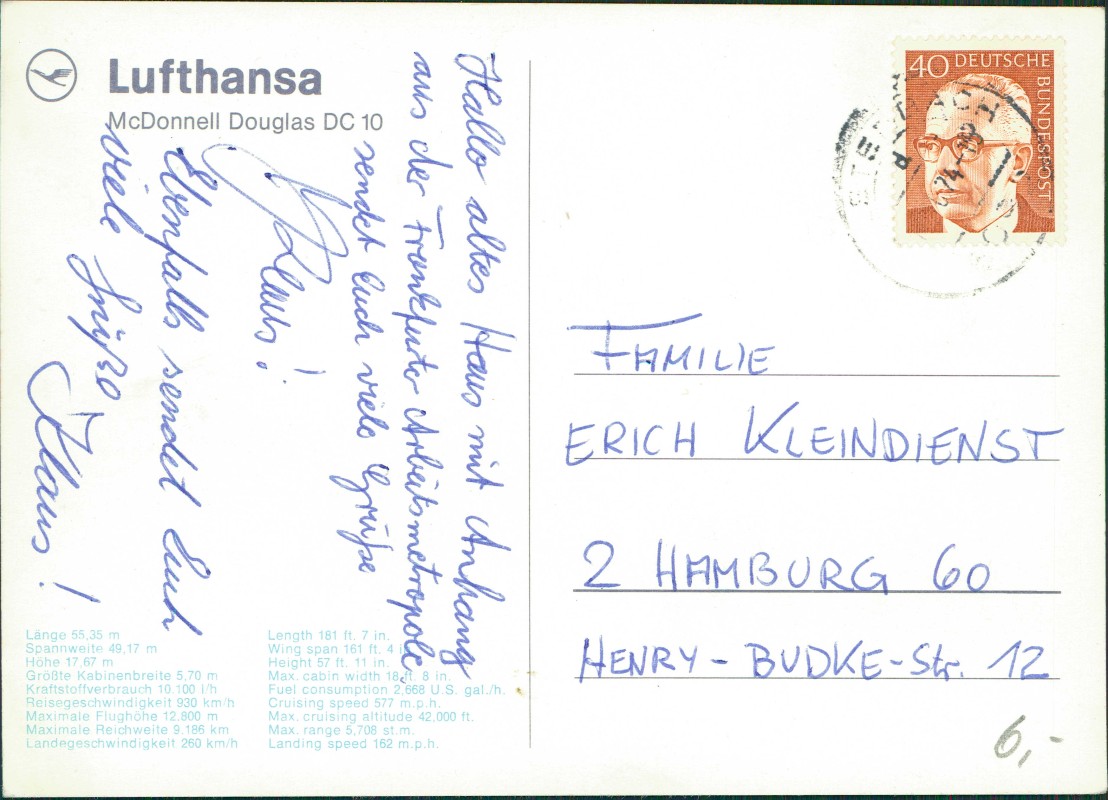 Lufthansa
McDonnell Douglas DC 10
Hallo altes Haus mit Anhang
aus der Frankfurter Arbeitsmetropole
sendet Euch viele Grüße
Klaus!
Ebenfalls sendet Euch
viele Grüße
Klaus!
Länge 55,35 m
Spannweite 49,17 m
Höhe 17,67 m
Größte Kabinenbreite 5,70 m
Kraftstoffverbrauch 10.100 l/h
Reisegeschwindigkeit 930 km/h
Maximale Flughöhe 12.800 m
Maximale Reichweite 9.186 km
Landegeschwindigkeit 260 km/h
Length 181 ft. 7 in.
Wing span 161 ft. 4 in
Height 57 ft. 11 in.
Max. cabin width 18 ft. 8 in.
Fuel consumption 2,668 U.S. gal./h.
Cruising speed 577 m.p.h.
Max. cruising altitude 42,000 ft.
Max. range 5,708 st.m.
Landing speed 162 m.p.h.
40 DEUTSCHE
BUNDESPOST
FAMILIE
ERICH KLEINDIENST
2 HAMBURG 60
HENRY-BUDKE-Str. 12
6,-